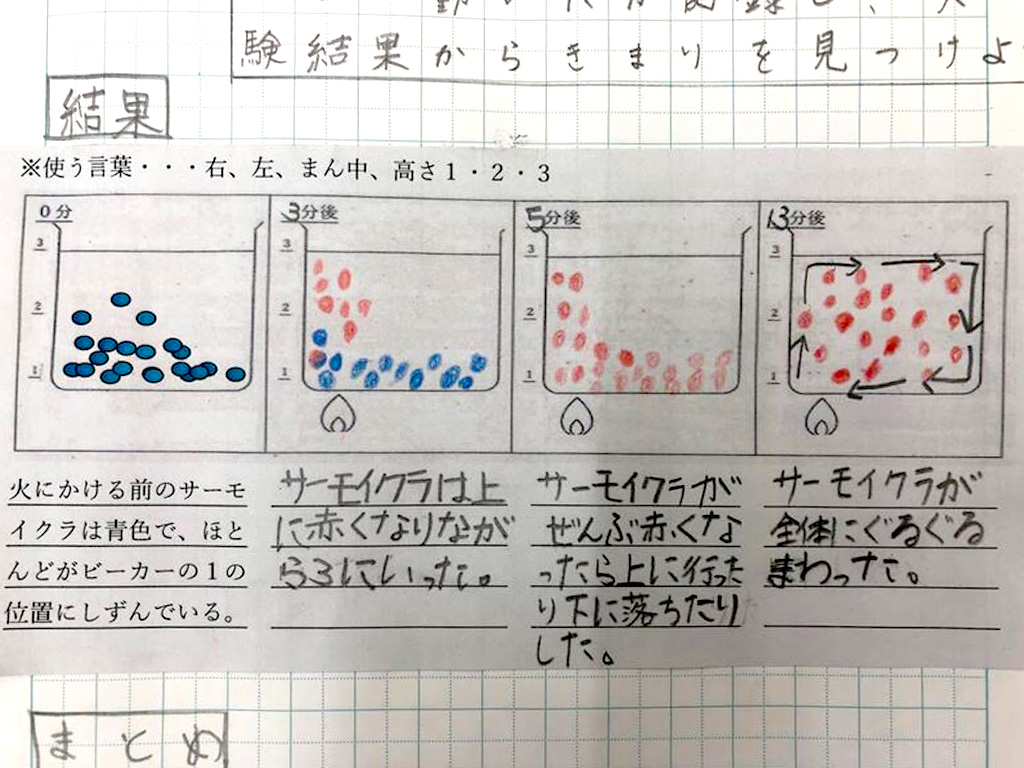 験結果からきまりを見つけよ
結果
※使う言葉・・・右、左、まん中、高さ１・２・３
０分
3分後
5分後
13分後
3
2
1
3
2
1
3
2
1
3
2
1
火にかける前のサーモ
イクラは青色で、ほと
んどがビーカーの１の
位置にしずんでいる。
サーモイクラは上
に赤くなりなが
ら3にいった。
サーモイクラが
ぜんぶ赤くな
ったら上に行った
り下に落ちたり
した。
サーモイクラが
全体にぐるぐる
まわった。
まとめ